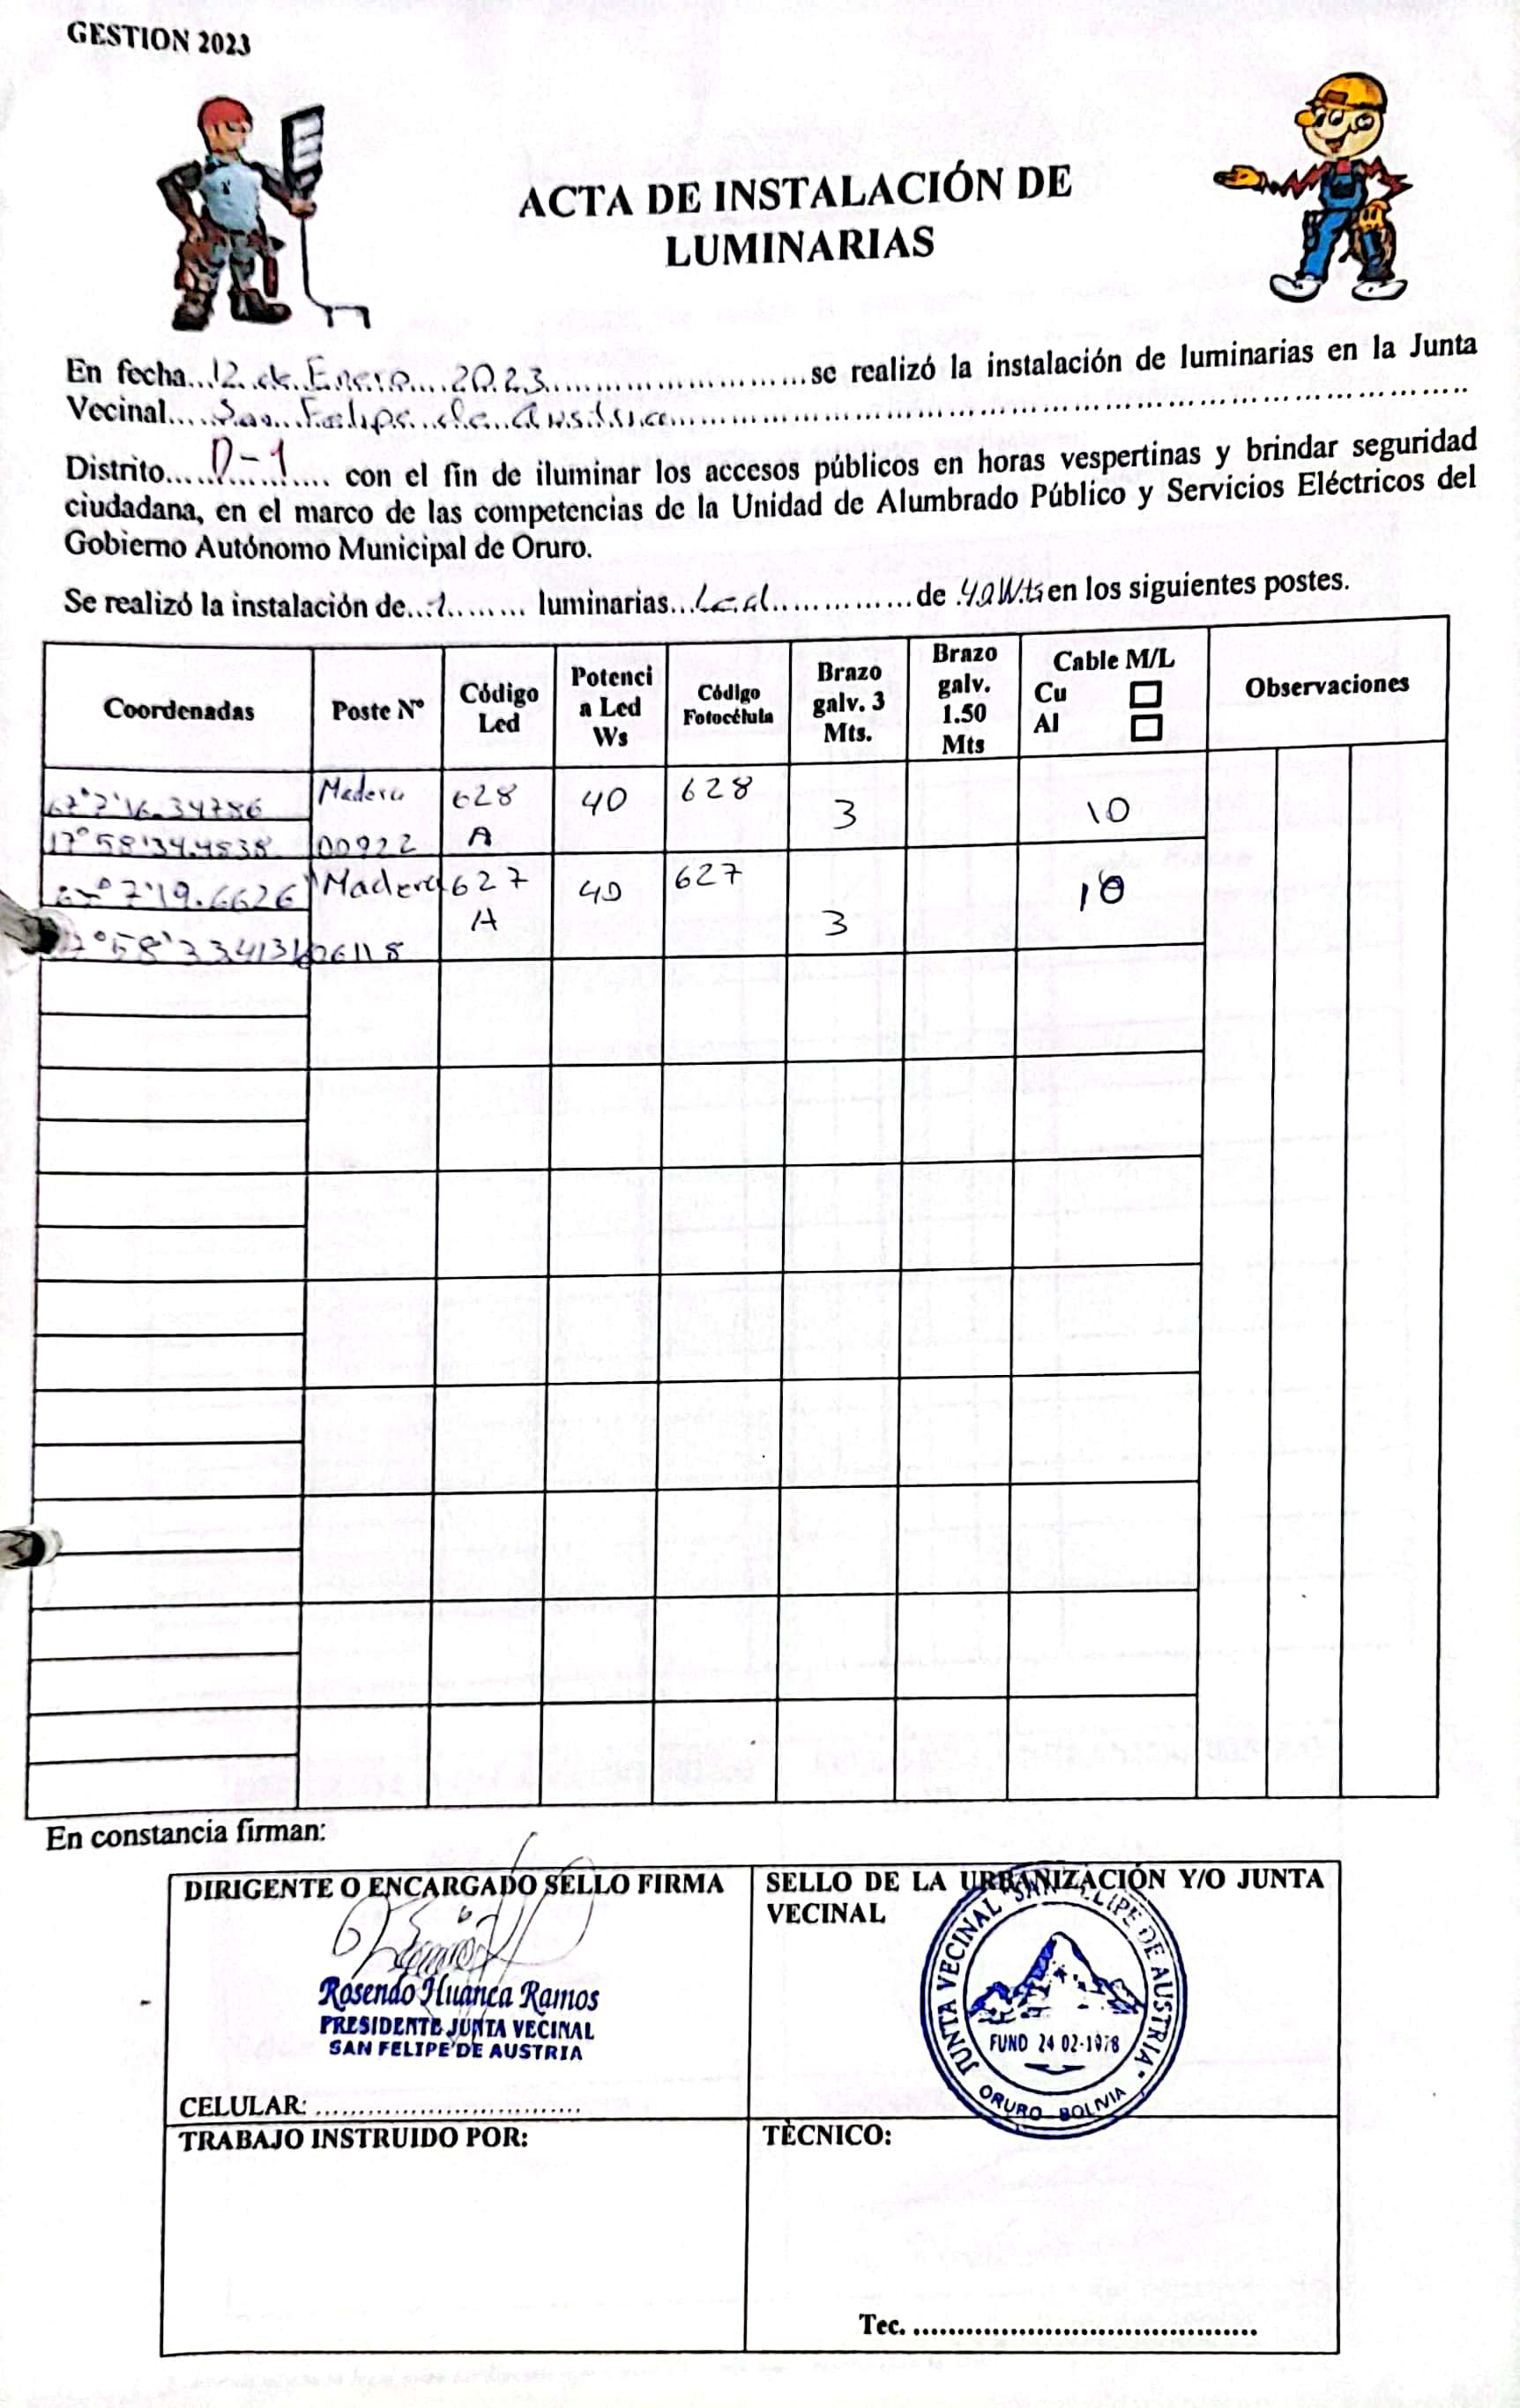 GESTION 2023
ACTA DE INSTALACIÓN DE
LUMINARIAS
En fecha...12 de Enero...2023...se realizó la instalación de luminarias en la Junta
Vecinal...San Felipe de Austria...
Distrito...D-1... con el fin de iluminar los accesos públicos en horas vespertinas y brindar seguridad
ciudadana, en el marco de las competencias de la Unidad de Alumbrado Público y Servicios Eléctricos del
Gobierno Autónomo Municipal de Oruro.
Se realizó la instalación de... luminarias...Led...de 40Wts en los siguientes postes.
Coordenadas Poste Nº Código Led Potencia Led Ws Código Fotocélula Brazo galv. 3 Mts. Brazo galv. 1.50 Mts Cable M/L Cu Al Observaciones
67°7'16.34786 Madera 628 40 628 3 10
17°58'34.4838 00922 A
7'19.6626" Madera 627 40 627 3 10
°58'33.413 06118 A
En constancia firman:
DIRIGENTE O ENCARGADO SELLO FIRMA
Rosendo Huanca Ramos
PRESIDENTE JUNTA VECINAL
SAN FELIPE DE AUSTRIA
CELULAR: ..............................
SELLO DE LA URBANIZACIÓN Y/O JUNTA
VECINAL
JUNTA VECINAL "SAN FELIPE DE AUSTRIA"
FUND 24 02-1978
ORURO - BOLIVIA
TRABAJO INSTRUIDO POR:
TÈCNICO:
Tec. ......................................